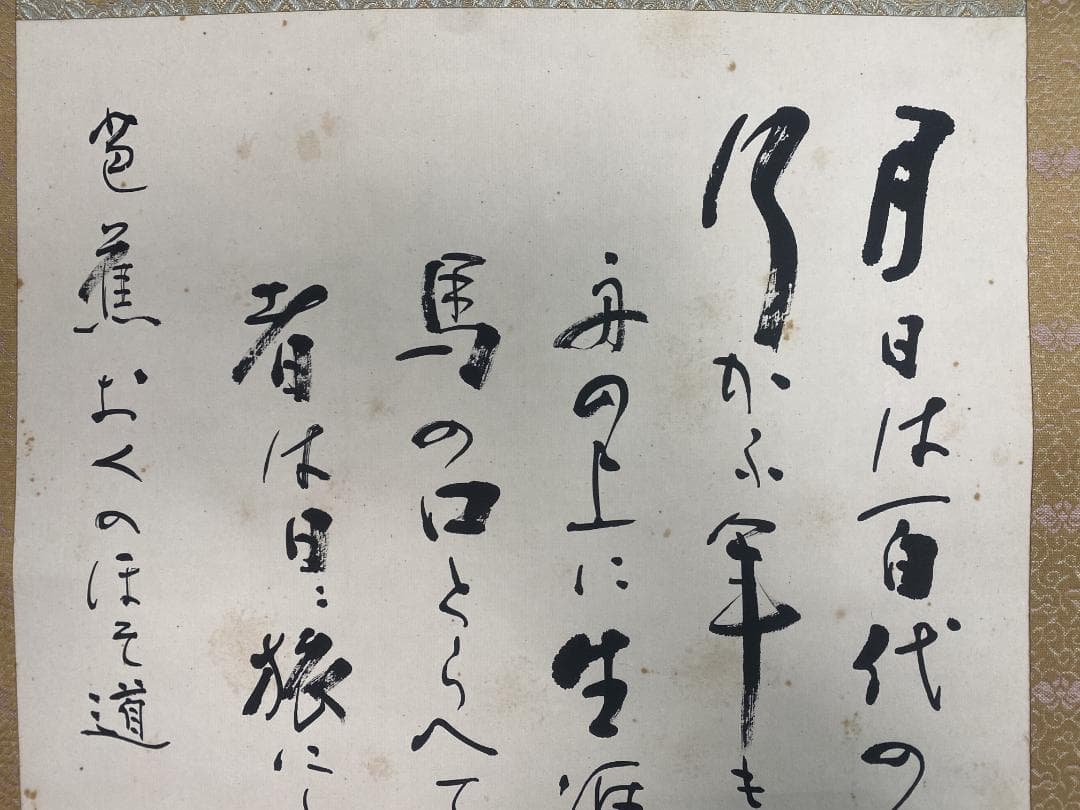 月日は百代の
行かふ年も
舟の上に生涯
馬の口とらへて
者は日ゝ旅にし
芭蕉おくのほそ道